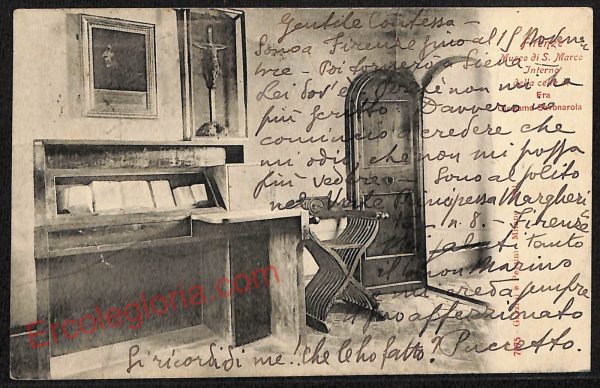 Gentile Contessa -
Sono a Firenze fino al 15 Novem
bre - Poi tornerò a Siena -
Lei dov'è? Perché non mi ha
più scritto? Davvero
comincio a credere che
mi odii, che non mi possa
più vedere - Sono al solito
nel Viale Principessa Margheri
ta n. 8. - Firenze
Mi saluti tanto
il buon Marino
e mi creda sempre
il suo affezionato
Puccetto.
Si ricordi di me! Che le ho fatto?
Firenze
Museo di S. Marco
Interno
della cella
Fra
Girolamo Savonarola
Ercolegioria.com